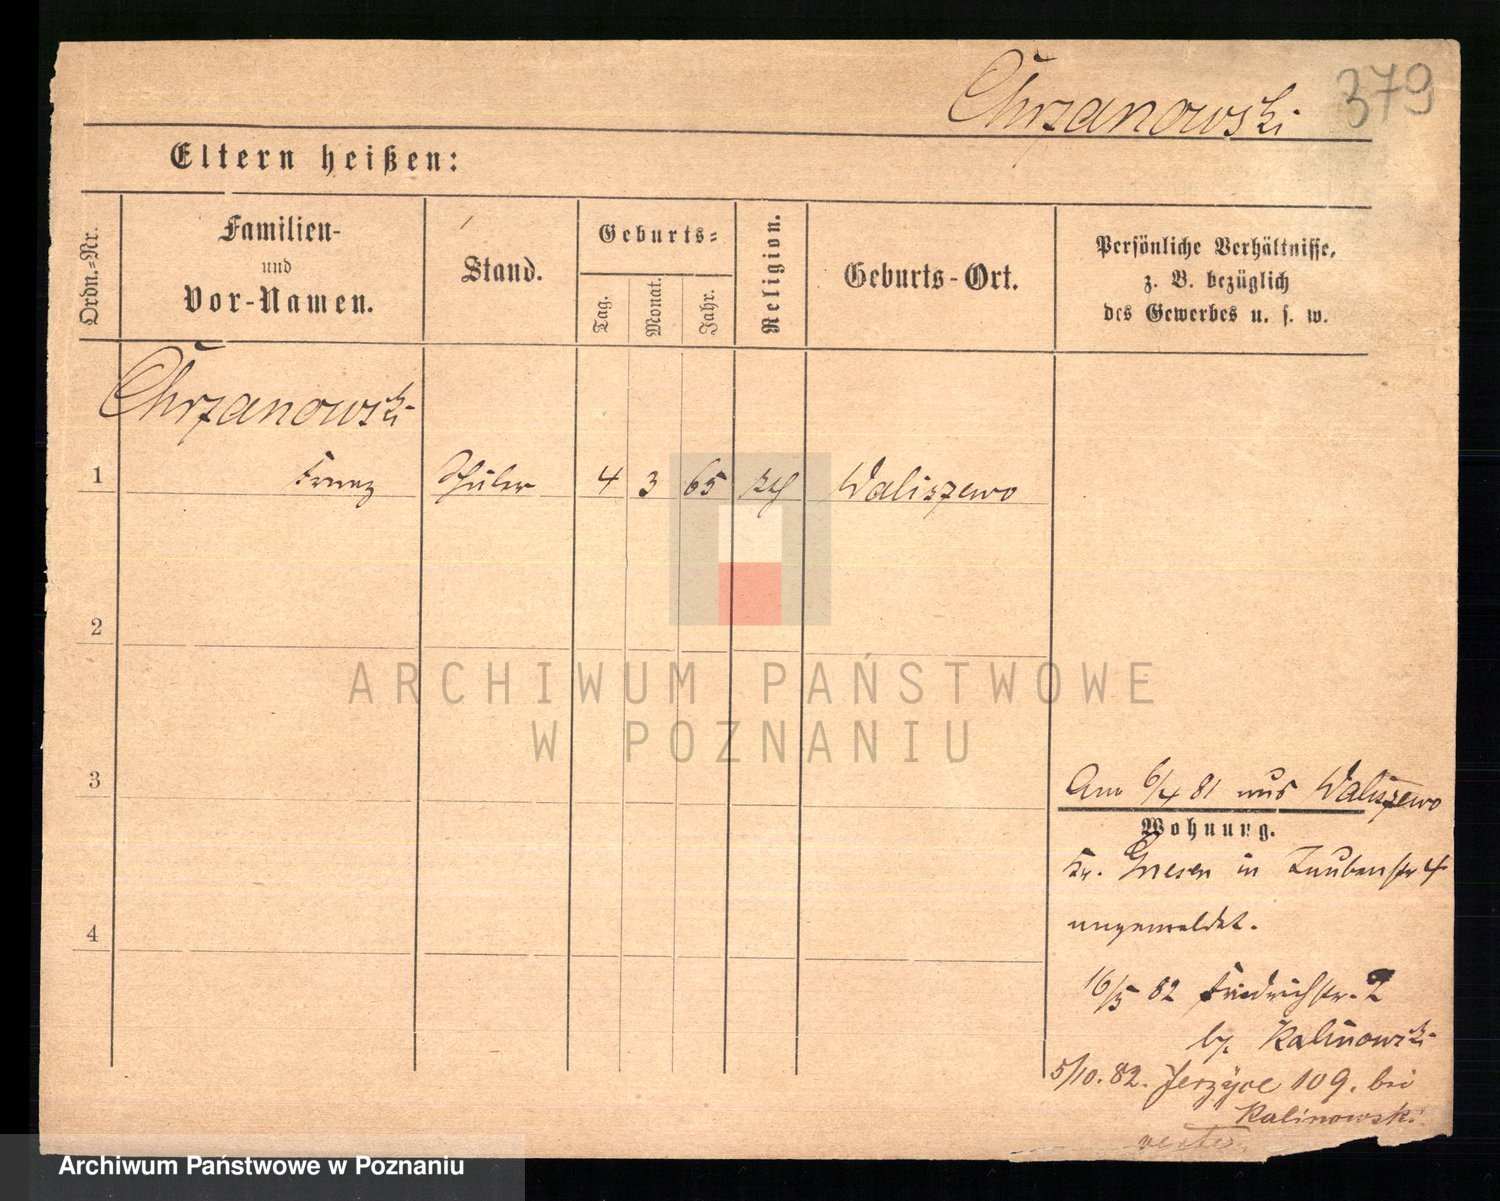 Chrzanowski 379
Eltern heißen:
Ordn.-Nr.
Familien-
und
Vor-Namen.
Stand.
Geburts-
Tag.
Monat.
Jahr.
Religion.
Geburts-Ort.
Persönliche Verhältnisse,
z. B. bezüglich
des Gewerbes u. s. w.
Chrzanowski
1 Franz Schüler 4 3 65 kth Waliszewo
2
3
4
Am 6/4 81 aus Waliszewo
Wohnung.
Kr. Gnesen in Taubenstr 4
angemeldet.
16/5 82 Friedrichstr. 2
by Kalinowski
5/10. 82. Jerzyce 109. bei
Kalinowski
verte.
ARCHIWUM PAŃSTWOWE
W POZNANIU
Archiwum Państwowe w Poznaniu